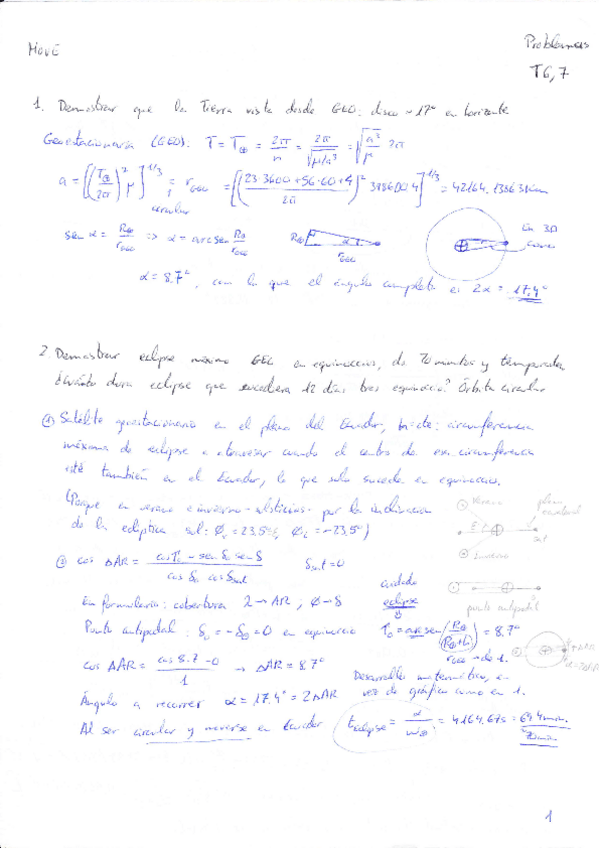 MOVE
Problemas
T6,7
1. Demostrar que la Tierra vista desde GEO: disco ~ 17° en horizonte
Geoestacionaria (GEO). T = T⊕ = 2π/n = 2π/√(μ/a³) = √(a³/μ) 2π
a = [(T⊕/2π)² μ]^1/3 = r_GEO = [((23·3600 + 56·60 + 4)/2π)² 398600.4]^1/3 = 42164.13863 km
circular
sen α = R⊕/r_GEO => α = arcsen R⊕/r_GEO
R⊕
α
r_GEO
En 3D
cono
α = 8.7°, con lo que el ángulo completo es 2α = 17.4°
2. Demostrar eclipse máximo GEO en equinoccios, de 70 minutos y temporada
¿Cuánto dura eclipse que sucediera 12 días tras equinoccio? Órbita circular
① Satélite geoestacionario en el plano del Ecuador, h=cte: circunferencia
máxima de eclipse a atravesar cuando el centro de esa circunferencia
esté también en el Ecuador, lo que solo sucede en equinoccio.
(Porque en verano e invierno -solsticios- por la inclinación
de la eclíptica sol: = 23,5°, = -23.5°)
Verano
plano
ecuatorial
E
sat
Invierno
② cos ΔAR = (cos − sen δ₀ sen δ)/(cos δ₀ cos δsat) δsat = 0
En formulario: cobertura λ → AR; ϕ → δ
cuidado
eclipse
punto antipodal
Punto antipodal: δ₀ = -δ⊙ = 0 en equinoccio
= arcsen(R⊕/(R⊕+h)) = 8.7°
cos ΔAR = (cos 8.7 − 0)/1 → ΔAR = 8.7°
Desarrollo matemático, en
vez de gráfico como en 1.
Ángulo a recorrer α = 17.4° = 2ΔAR
Al ser circular y moverse en Ecuador
t eclipse = α/ω⊕ = 4164.67s = 69.4 min.
70 min
1